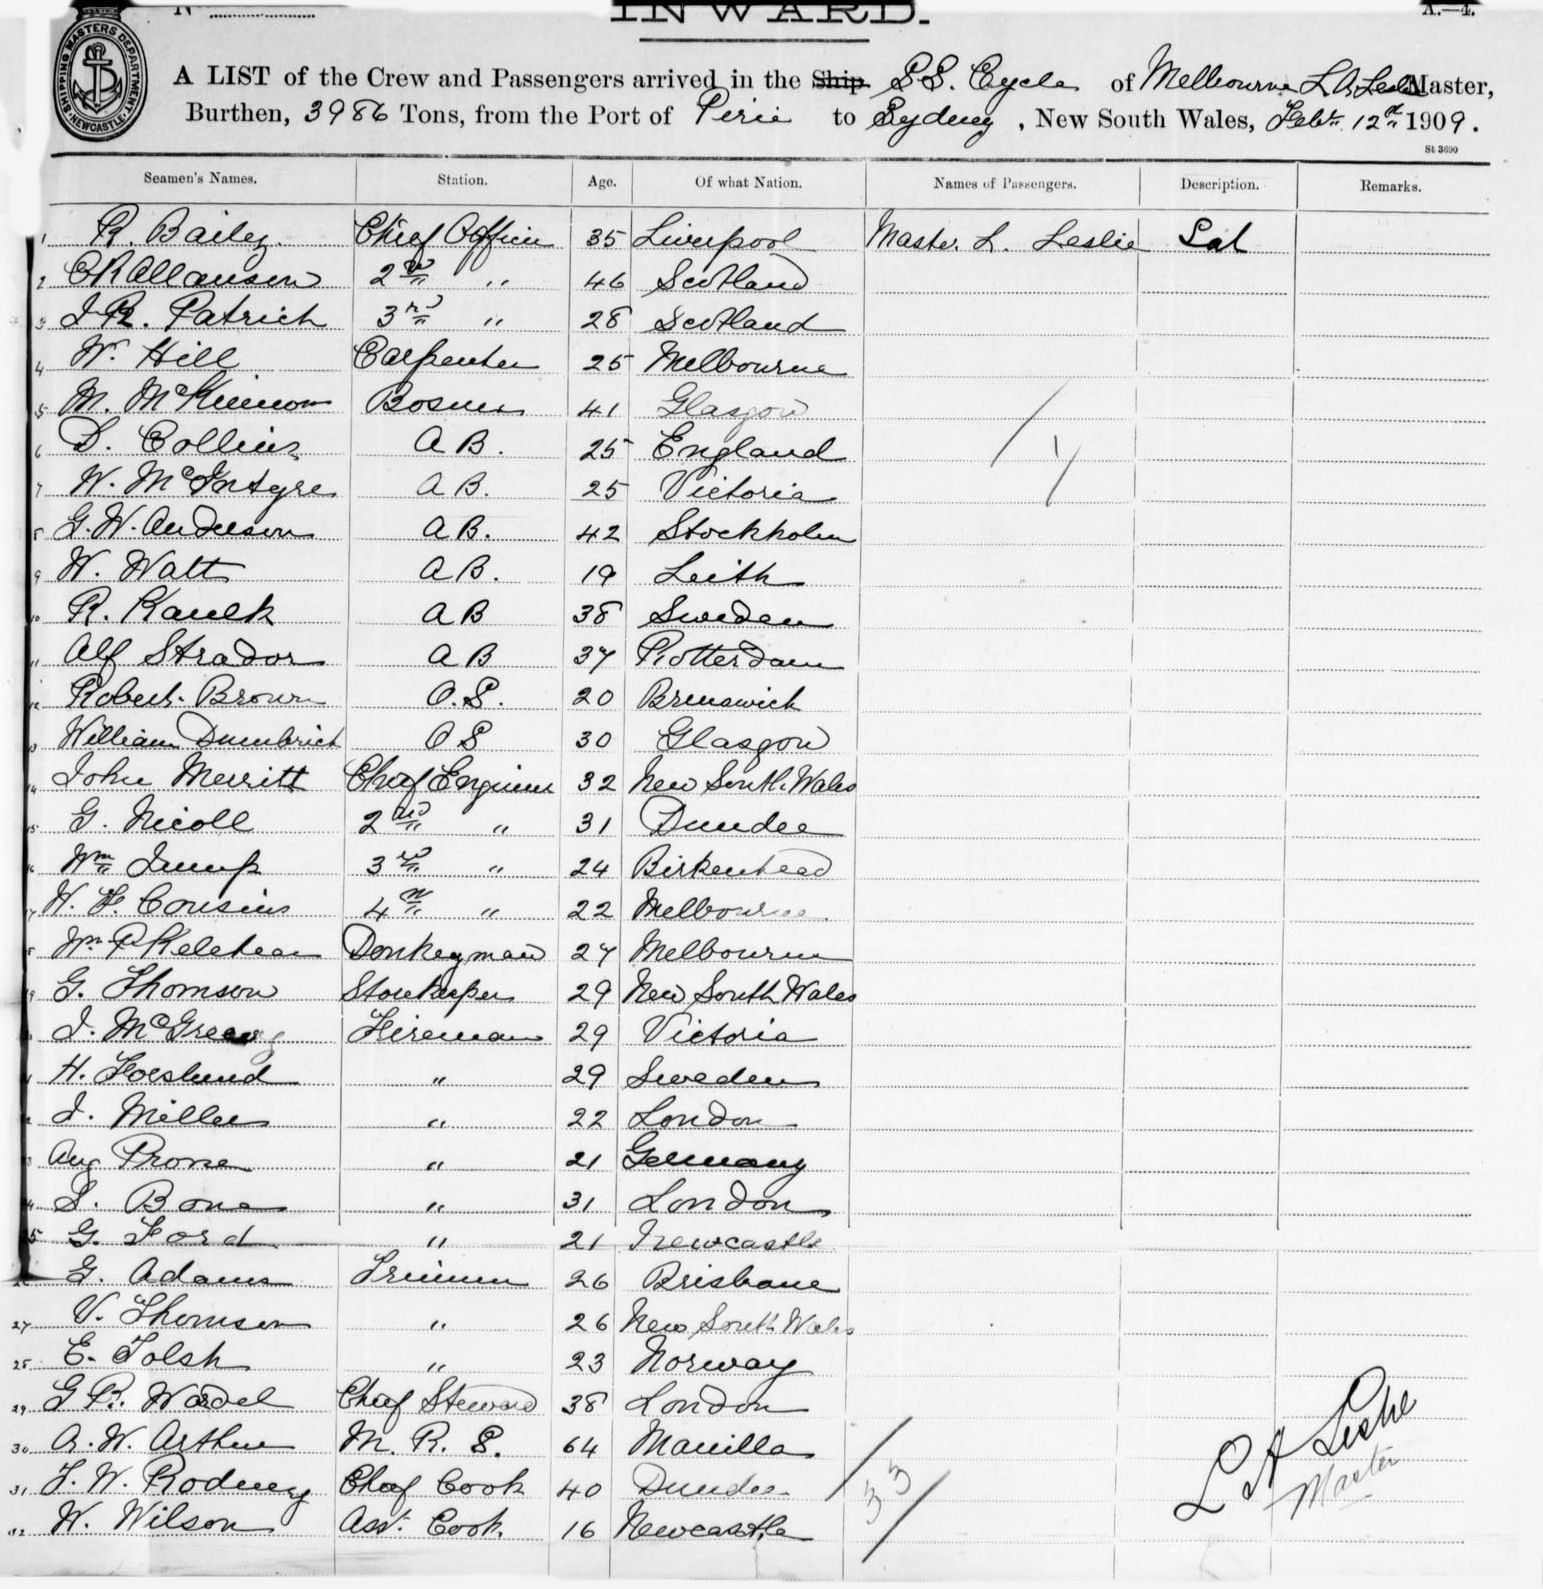 INWARD.
A.—4.
SHIPPING MASTERS DEPARTMENT NEWCASTLE
A LIST of the Crew and Passengers arrived in the Ship S.S. Cycle of Melbourne L A Leslie Master,
Burthen, 3986 Tons, from the Port of Pirie to Sydney, New South Wales, Feb 12th 1909.
St 3690
Seamen's Names. Station. Age. Of what Nation. Names of Passengers. Description. Remarks.
1 R. Bailey. Chief Officer 35 Liverpool Master. L. Leslie Sal
2 C R Allanson 2nd " 46 Scotland
3 J R. Patrick 3rd " 28 Scotland
4 W. Hill Carpenter 25 Melbourne
5 M. McKinnon Bosun 41 Glasgow
6 D. Collins A B. 25 England
7 W. McIntyre A B. 25 Victoria
8 G. W. Anderson A B. 42 Stockholm
9 W. Watt A B. 19 Leith
10 R. Kaulk A B 38 Sweden
11 Alf Strador A B 37 Rotterdam
12 Robert Brown O. S. 20 Brunswick
13 William Dumbrick O S 30 Glasgow
14 John Merritt Chief Engineer 32 New South Wales
15 G. Nicoll 2nd " 31 Dundee
16 Wm Jump 3rd " 24 Birkenhead
17 W. F. Cousins 4th " 22 Melbourne
18 Wm P Kelehear Donkeyman 27 Melbourne
19 G. Thomson Storekeeper 29 New South Wales
J. McGreevy Fireman 29 Victoria
H. Forslund " 29 Sweden
J. Miller " 22 London
Aug Prone " 21 Germany
S. Bone " 31 London
5 G. Ford " 21 Newcastle
26 G. Adams Trimmer 26 Brisbane
27 V. Thomson " 26 New South Wales
28 E. Tolsh " 23 Norway
29 G R. Wardel Chief Steward 38 London
30 A. W. Arthur M. R. S. 64 Manilla
31 J. W. Rodney Chef Cook 40 Dundee
32 W. Wilson Asst. Cook. 16 Newcastle
33
L A Leslie
Master